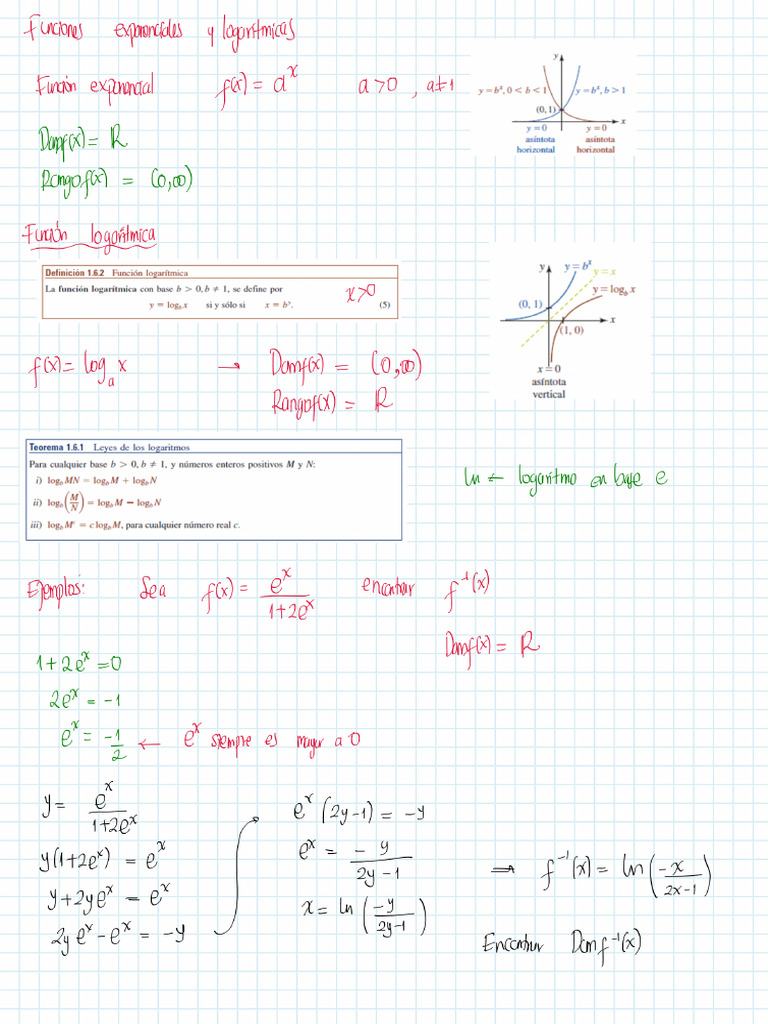 Funciones exponenciales y logarítmicas
Función exponencial f(x) = a^x a>0 , a≠1
y = b^x, 0 < b < 1
y = b^x, b > 1
(0, 1)
y
x
y = 0 asíntota horizontal
y = 0 asíntota horizontal
Domf(x) = R
Rangof(x) = (0,∞)
Función logarítmica
Definición 1.6.2 Función logarítmica
La función logarítmica con base b > 0, b ≠ 1, se define por
y = log_b x si y sólo si x = b^y. (5)
x>0
y
y = b^x
y = x
y = log_b x
(0, 1)
x
(1, 0)
x = 0
asíntota
vertical
f(x) = log_a x → Domf(x) = (0,∞)
Rangof(x) = R
Teorema 1.6.1 Leyes de los logaritmos
Para cualquier base b > 0, b ≠ 1, y números enteros positivos M y N:
i) log_b MN = log_b M + log_b N
ii) log_b (M/N) = log_b M − log_b N
iii) log_b M^c = c log_b M, para cualquier número real c.
ln ← logaritmo en base e
Ejemplos: Sea f(x) = e^x/(1+2e^x) encontrar f^-1(x)
Domf(x) = R
1+2e^x = 0
2e^x = -1
e^x = -1/2 ← e^x siempre es mayor a 0
y = e^x/(1+2e^x)
y(1+2e^x) = e^x
y+2ye^x = e^x
2ye^x - e^x = -y
e^x (2y-1) = -y
e^x = -y/(2y-1)
x = ln (-y/(2y-1))
→ f^-1(x) = ln (-x/(2x-1))
Encontrar Domf^-1(x)